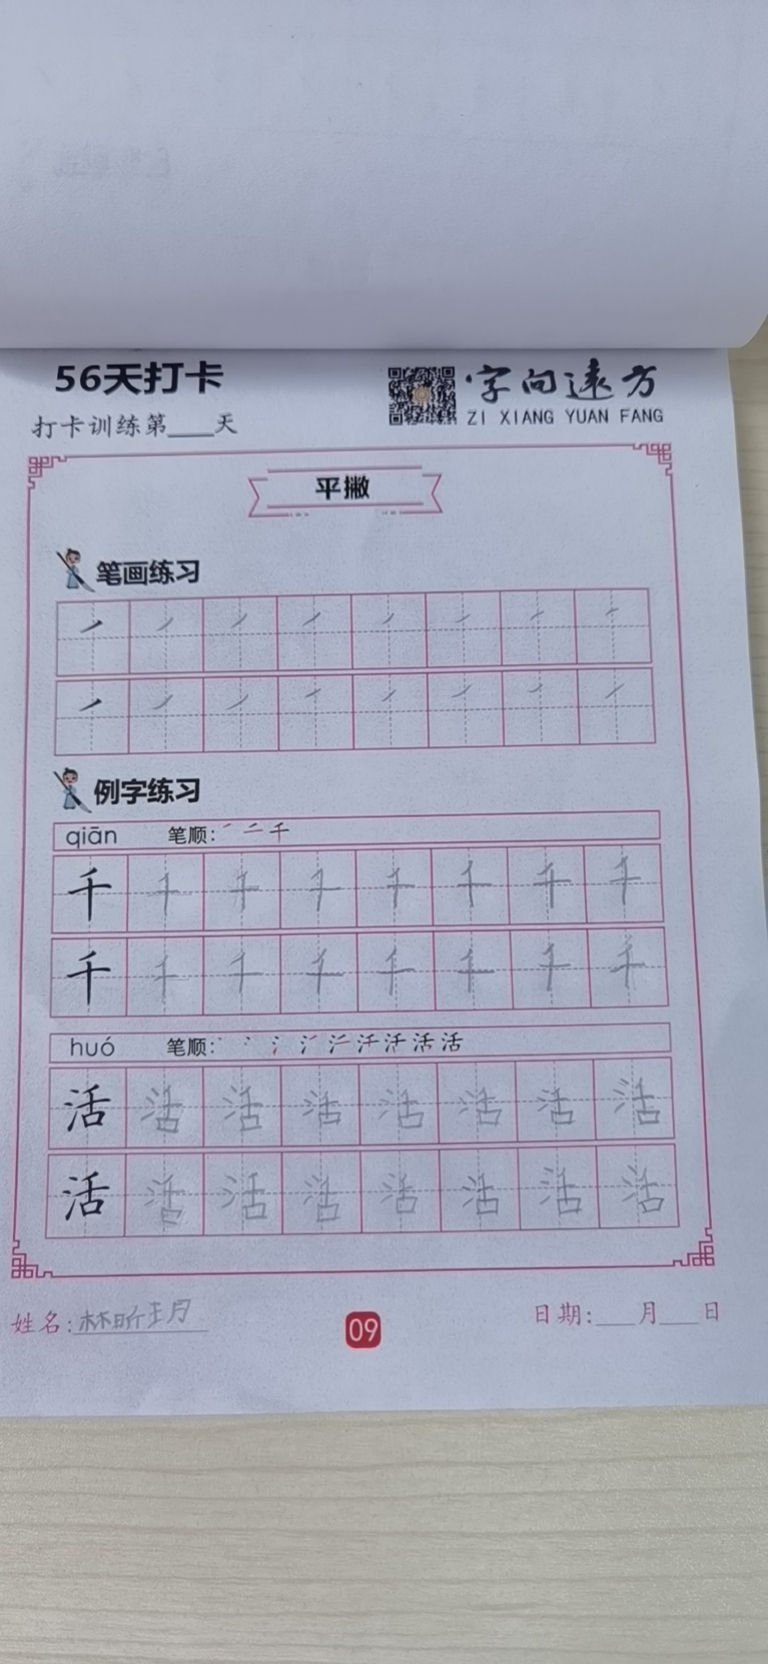 56天打卡
字向远方
打卡训练第___天
ZI XIANG YUAN FANG
平撇
笔画练习
例字练习
qiān 笔顺: ㇒ 二 千
千 千 千 千 千 千 千 千
千 千 千 千 千 千 千 千
huó 笔顺: 活
活 活 活 活 活 活 活 活
活 活 活 活 活 活 活 活
姓名:林昕玥
09
日期:___月___日